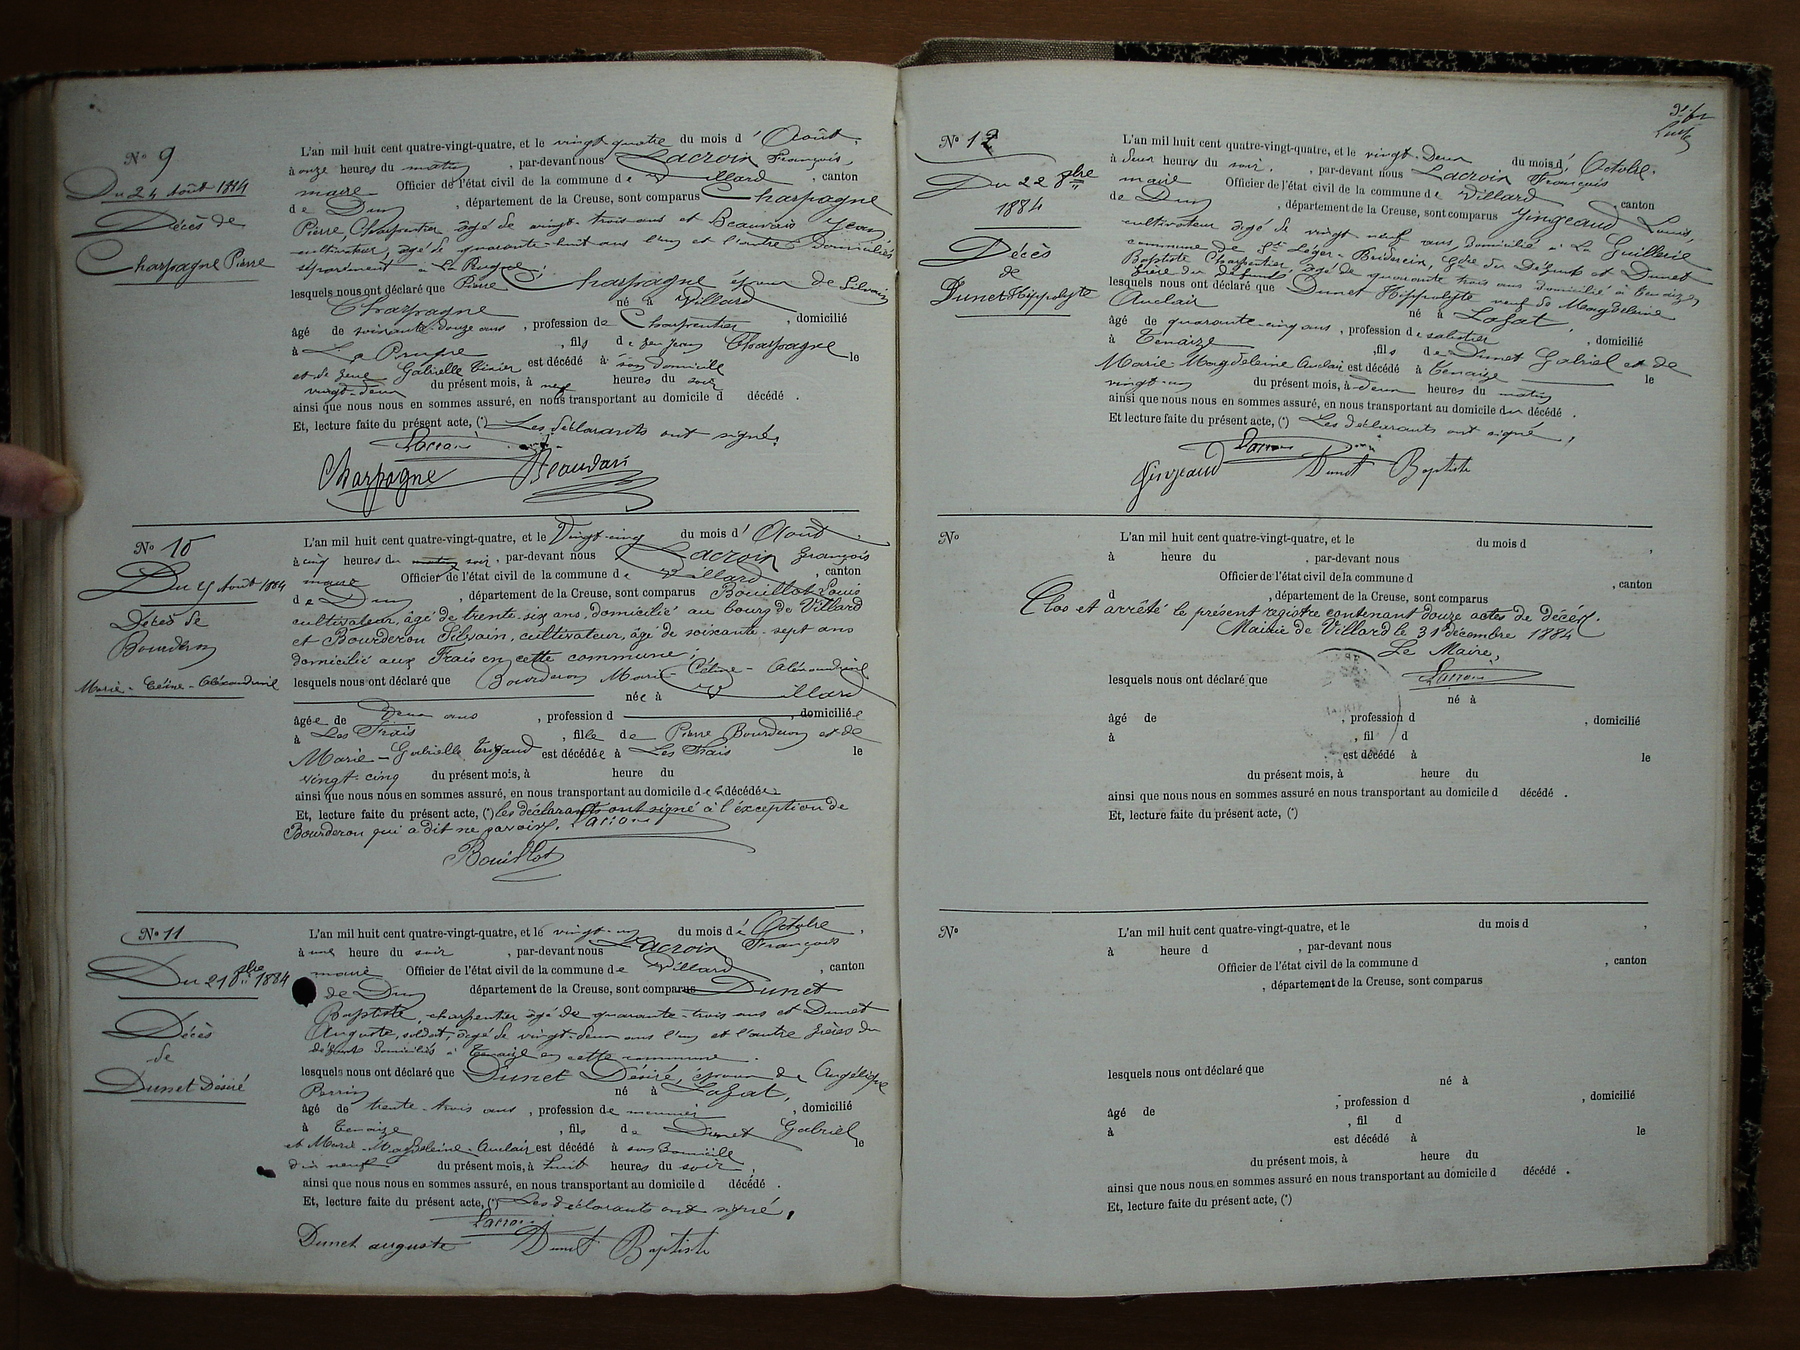 N° 9
Du 24 Août 1884
Décès de
Charpagne Pierre
L'an mil huit cent quatre-vingt-quatre, et le vingt quatre du mois d'Août,
à onze heures du matin, par-devant nous Lacroix François,
maire Officier de l'état civil de la commune de Villard, canton
de Dun, département de la Creuse, sont comparus Charpagne
Pierre, Charpentier âgé de vingt-trois ans et Beauvais Jean,
cultivateur, âgé de quarante-huit ans l'un et l'autre domiciliés
séparément à La
lesquels nous ont déclaré que Pierre Charpagne époux de Silvain
Charpagne né à Villard
âgé de soixante-douze ans, profession de Charpentier, domicilié
à La, fils de feu Jean Charpagne
et de feue Gabrielle est décédé à son domicile le
vingt-deux du présent mois, à neuf heures du soir
ainsi que nous nous en sommes assuré, en nous transportant au domicile d décédé.
Et, lecture faite du présent acte, (*) Les déclarants ont signé.
Lacroix
Charpagne Beauvais
N° 10
Du 25 Août 1884
Décès de
Bourderon
Marie-Céline-Alexandrine
L'an mil huit cent quatre-vingt-quatre, et le Vingt-cinq du mois d'Août,
à cinq heures du matin soir, par-devant nous Lacroix François
maire Officier de l'état civil de la commune de Villard, canton
de Dun, département de la Creuse, sont comparus Bouillot Louis
cultivateur, âgé de trente-six ans, domicilié au bourg de Villard
et Bourderon Silvain, cultivateur, âgé de soixante-sept ans
domicilié aux Frais en cette commune;
lesquels nous ont déclaré que Bourderon Marie-Céline-Alexandrine
née à Villard
âgée de Deux ans, profession d, domiciliée
à Les Frais, fille de Pierre Bourderon et de
Marie-Gabrielle est décédée à Les Frais le
vingt-cinq du présent mois, à heure du
ainsi que nous nous en sommes assuré, en nous transportant au domicile de la décédée.
Et, lecture faite du présent acte, (*) les déclarants ont signé à l'exception de
Bourderon qui a dit ne savoir. Lacroix
Bouillot
N° 11
Du 21 8bre 1884
Décès
de
Dunet Désiré
L'an mil huit cent quatre-vingt-quatre, et le vingt-un du mois d'Octobre,
à une heure du soir, par-devant nous Lacroix François
maire Officier de l'état civil de la commune de Villard, canton
de Dun département de la Creuse, sont comparus Dunet
Baptiste, charpentier âgé de quarante-trois ans et Dunet
Auguste, soldat, âgé de vingt-deux ans l'un et l'autre frères du
défunt domiciliés à Tenaize en cette commune.
lesquels nous ont déclaré que Dunet Désiré, époux de Angélique
Perrin né à Lafat,
âgé de trente-trois ans, profession de meunier, domicilié
à Tenaize, fils de Dunet Gabriel
et Marie-Magdeleine-Auclair est décédé à son Domicile le
dix neuf du présent mois, à huit heures du soir,
ainsi que nous nous en sommes assuré, en nous transportant au domicile d décédé.
Et, lecture faite du présent acte, (*) Les déclarants ont signé.
Lacroix
Dunet auguste Dunet Baptiste
N° 12
Du 22 8bre
1884
Décès
de
Dunet Hippolyte
L'an mil huit cent quatre-vingt-quatre, et le vingt-Deux du mois d'Octobre.
à deux heures du soir, par-devant nous Lacroix François
maire Officier de l'état civil de la commune de Villard, canton
de Dun, département de la Creuse, sont comparus Gingeaud Louis,
cultivateur âgé de vingt neuf ans, domicilié à La Guillerie
commune de St Léger-Bridereix, Gdre du Défunt et Dunet
Baptiste Charpentier, âgé de quarante trois ans domicilié à Tenaize,
frère du défunt
lesquels nous ont déclaré que Dunet Hippolyte veuf de Magdeleine
Auclair né à Lafat,
âgé de quarante-cinq ans, profession de sabotier, domicilié
à Tenaize, fils de Dunet Gabriel et de
Marie-Magdeleine Auclair est décédé à Tenaize le
vingt-un du présent mois, à deux heures du matin
ainsi que nous nous en sommes assuré, en nous transportant au domicile du décédé.
Et lecture faite du présent acte, (*) Les déclarants ont signé,
Lacroix
Gingeaud Dunet Baptiste
N°
L'an mil huit cent quatre-vingt-quatre, et le du mois d,
à heure du, par-devant nous
Officier de l'état civil de la commune d, canton
d, département de la Creuse, sont comparus
Clos et arrêté le présent registre contenant douze actes de décès.
Mairie de Villard le 31 décembre 1884
Le Maire,
Lacroix
lesquels nous ont déclaré que
né à
âgé de, profession d, domicilié
à, fil d
est décédé à le
du présent mois, à heure du
ainsi que nous nous en sommes assuré en nous transportant au domicile d décédé.
Et, lecture faite du présent acte, (*)
N°
L'an mil huit cent quatre-vingt-quatre, et le du mois d,
à heure d, par-devant nous
Officier de l'état civil de la commune d, canton
, département de la Creuse, sont comparus
lesquels nous ont déclaré que
né à
âgé de, profession d, domicilié
à, fil d
est décédé à le
du présent mois, à heure du
ainsi que nous nous en sommes assuré en nous transportant au domicile d décédé.
Et, lecture faite du présent acte, (*)